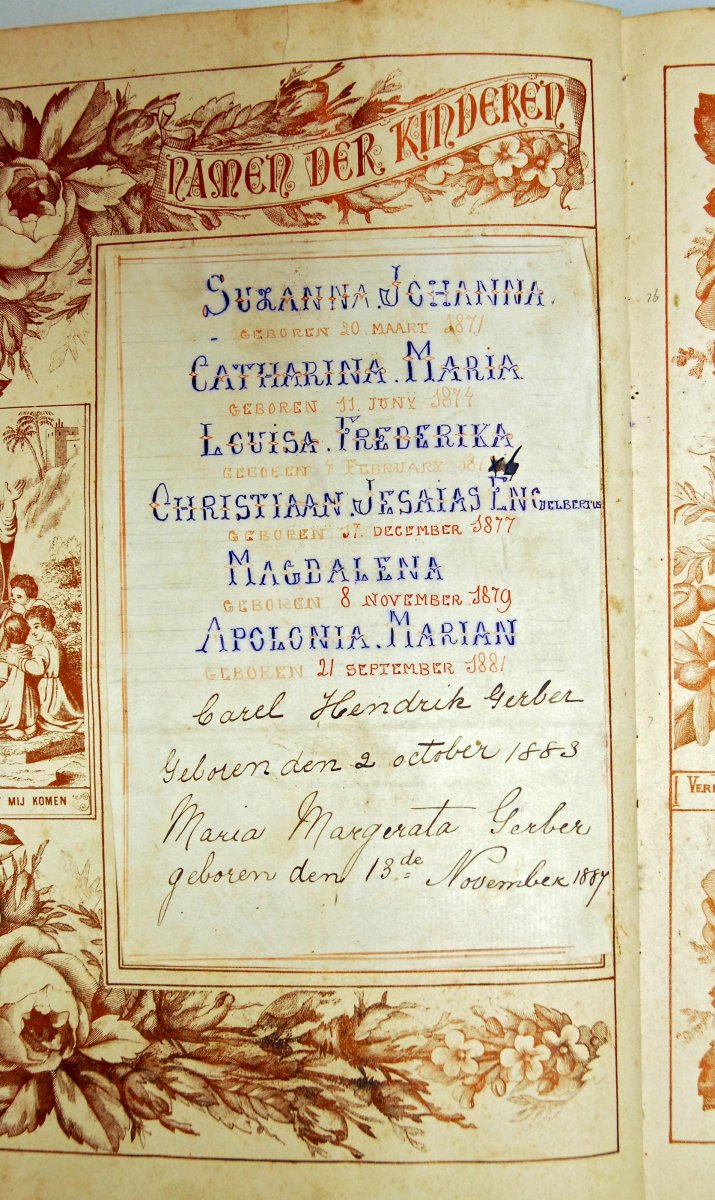 NAMEN DER KINDEREN
SUZANNA. JOHANNA.
GEBOREN 20. MAART 1871
CATHARINA. MARIA
GEBOREN 11. JUNY 1874
LOUISA. FREDERIKA
GEBOREN FEBRUARY 1876
CHRISTIAAN. JESAIAS ENGELBERTUS
GEBOREN 17. DECEMBER 1877
MAGDALENA
GEBOREN 8 NOVEMBER 1879
APOLONIA. MARIAN
GEBOREN 21 SEPTEMBER 1881
Carel Hendrik Gerber
Geboren den 2 october 1883
Maria Margerata Gerber
geboren den 13de November 1887
MIJ KOMEN